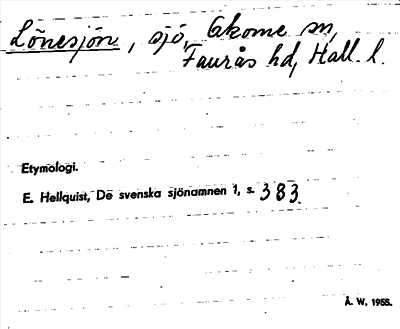 Lönesjön, sjö, Okome sn,
Faurås hd, Hall. l.
Etymologi.
E. Hellquist, De svenska sjönamnen 1, s. 383.
Å. W. 1955.